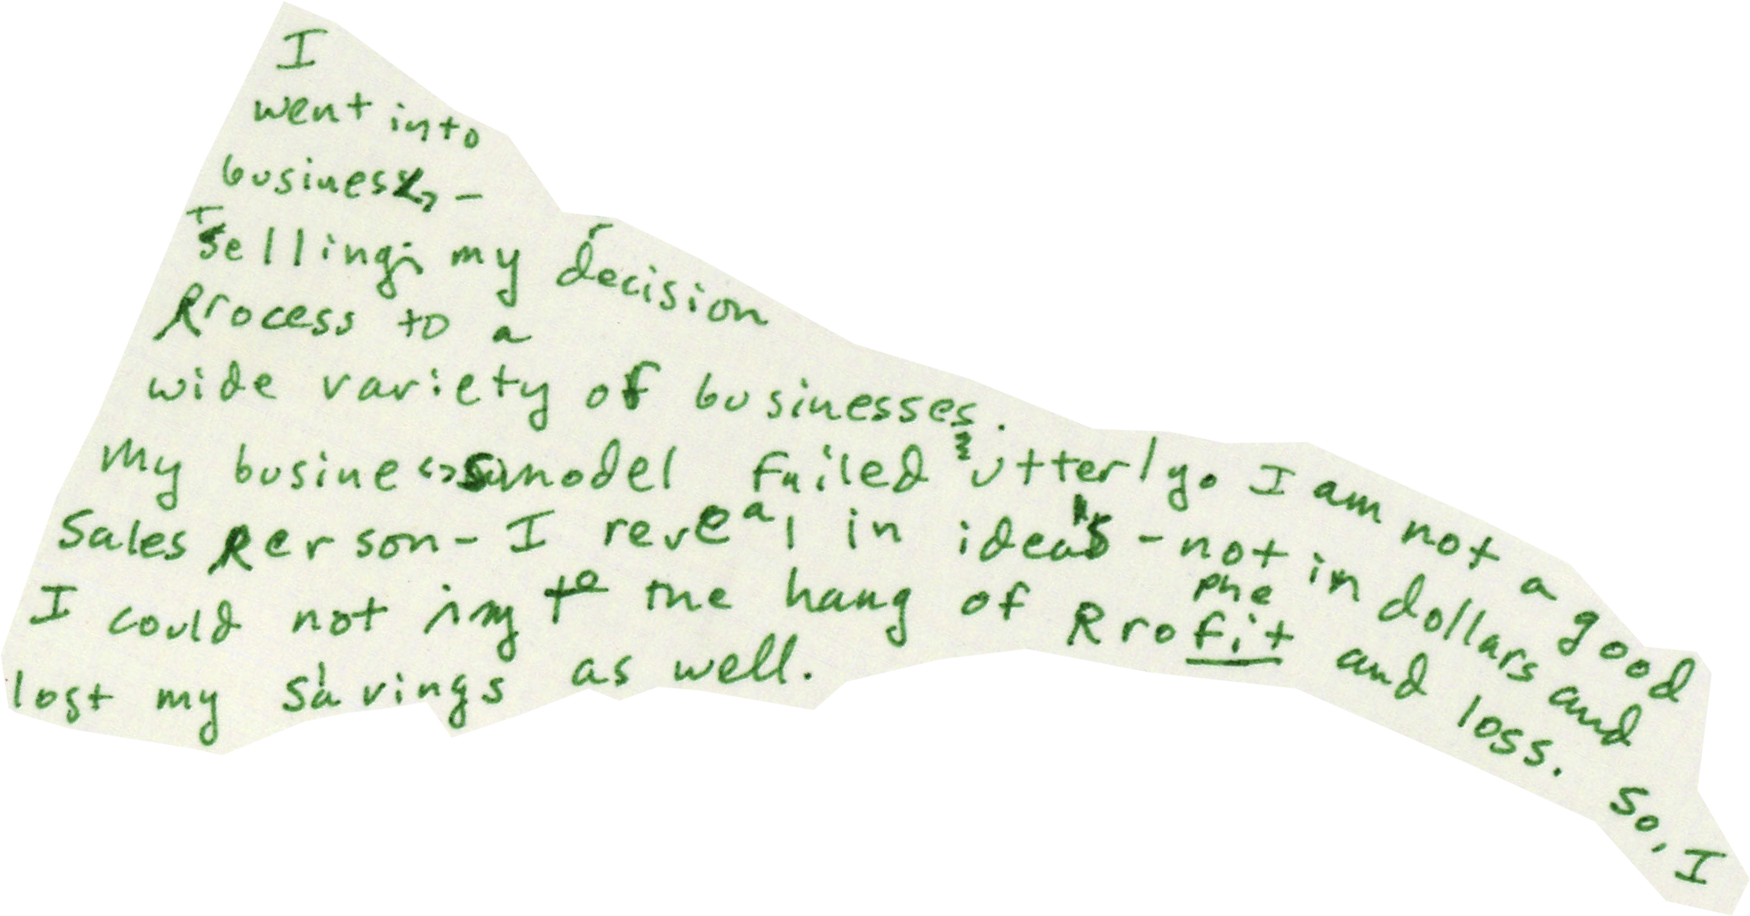 I
went into
business, –
selling my decision
Process to a
wide variety of businesses.
My business model failed utterly. I am not a good
Sales Person – I reveal in ideas – not in dollars and
I could not to the hang of Profit and loss. So, I
lost my savings as well.